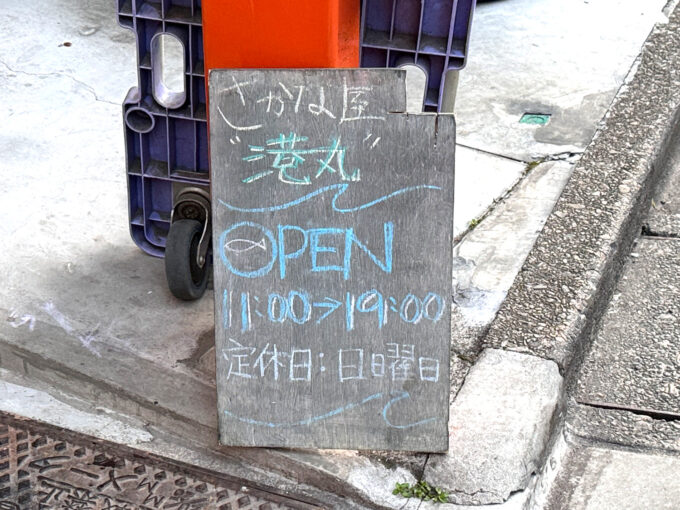 さかな屋
"港丸"
OPEN
11:00>19:00
定休日:日曜日